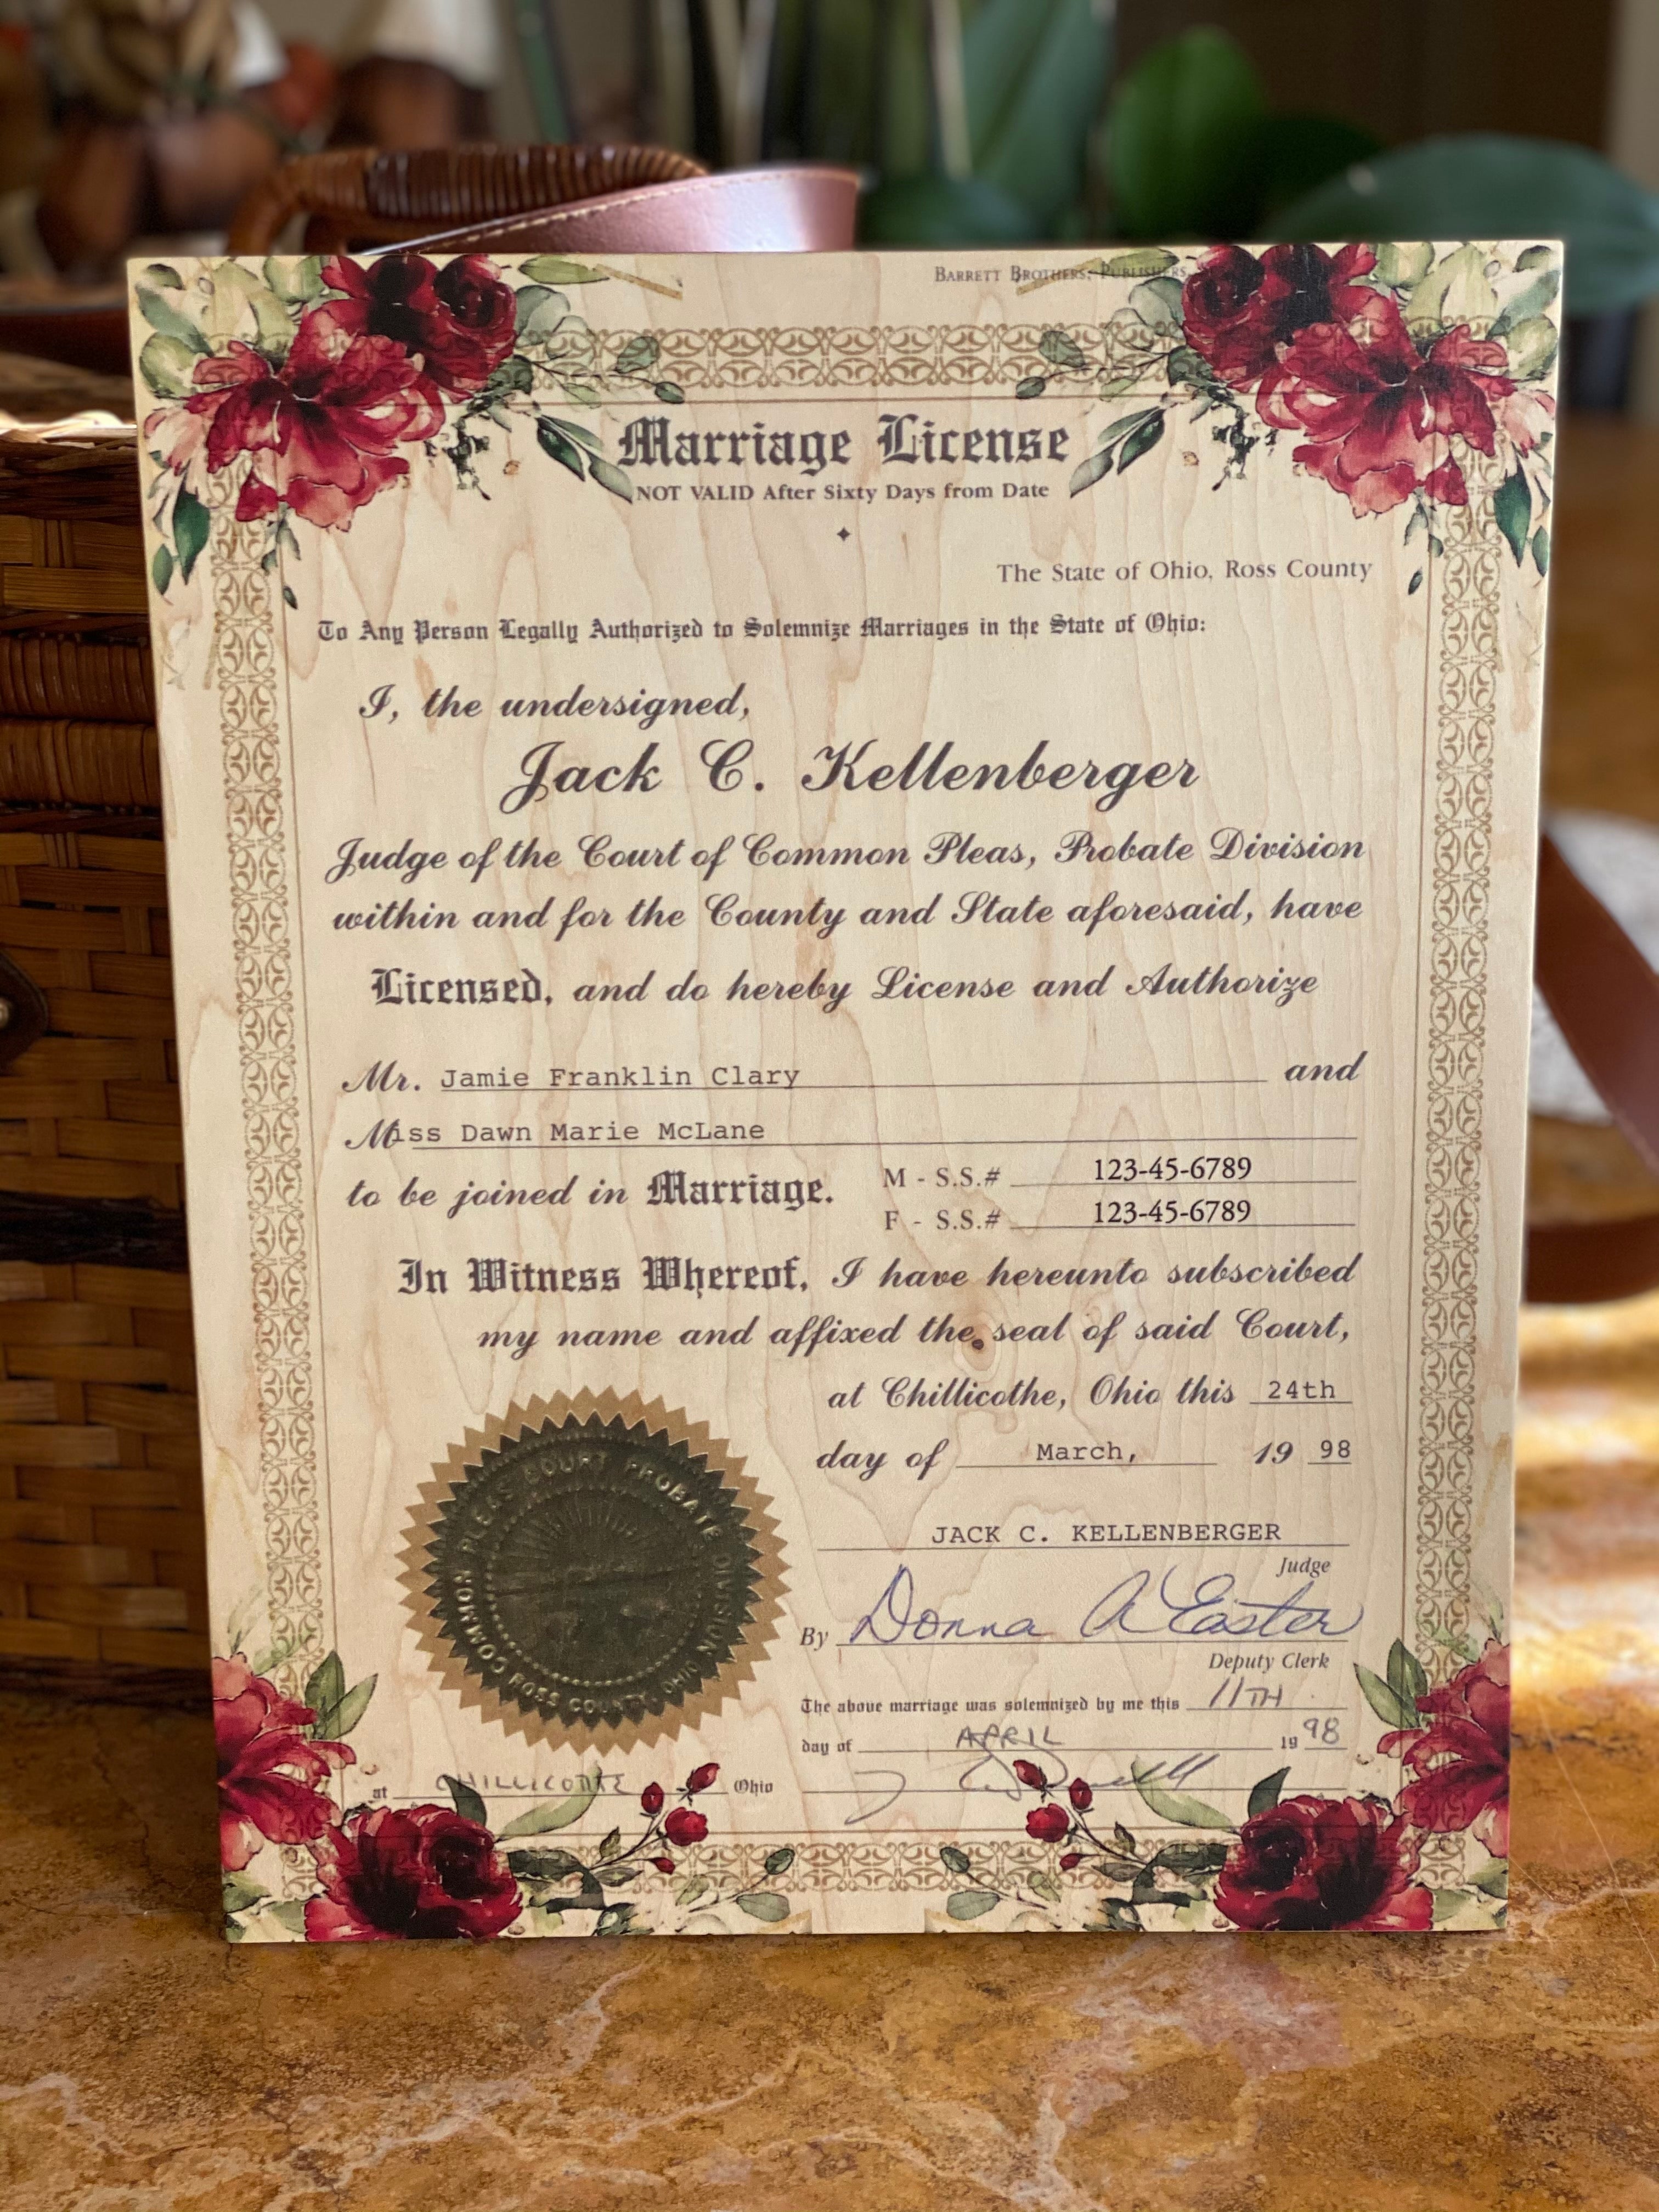 BARRETT BROTHERS, PUBLISHERS,
Marriage License
NOT VALID After Sixty Days from Date
The State of Ohio, Ross County
To Any Person Legally Authorized to Solemnize Marriages in the State of Ohio:
I, the undersigned,
Jack C. Kellenberger
Judge of the Court of Common Pleas, Probate Division
within and for the County and State aforesaid, have
Licensed, and do hereby License and Authorize
Mr. Jamie Franklin Clary and
Miss Dawn Marie McLane
to be joined in Marriage. M - S.S.# 123-45-6789
F - S.S.# 123-45-6789
In Witness Whereof, I have hereunto subscribed
my name and affixed the seal of said Court,
at Chillicothe, Ohio this 24th
day of March, 19 98
COMMON PLEAS COURT PROBATE DIVISION
ROSS COUNTY, OHIO
JACK C. KELLENBERGER
Judge
By Donna A Easter
Deputy Clerk
The above marriage was solemnized by me this 11TH
day of APRIL 19 98
at CHILLICOTHE Ohio